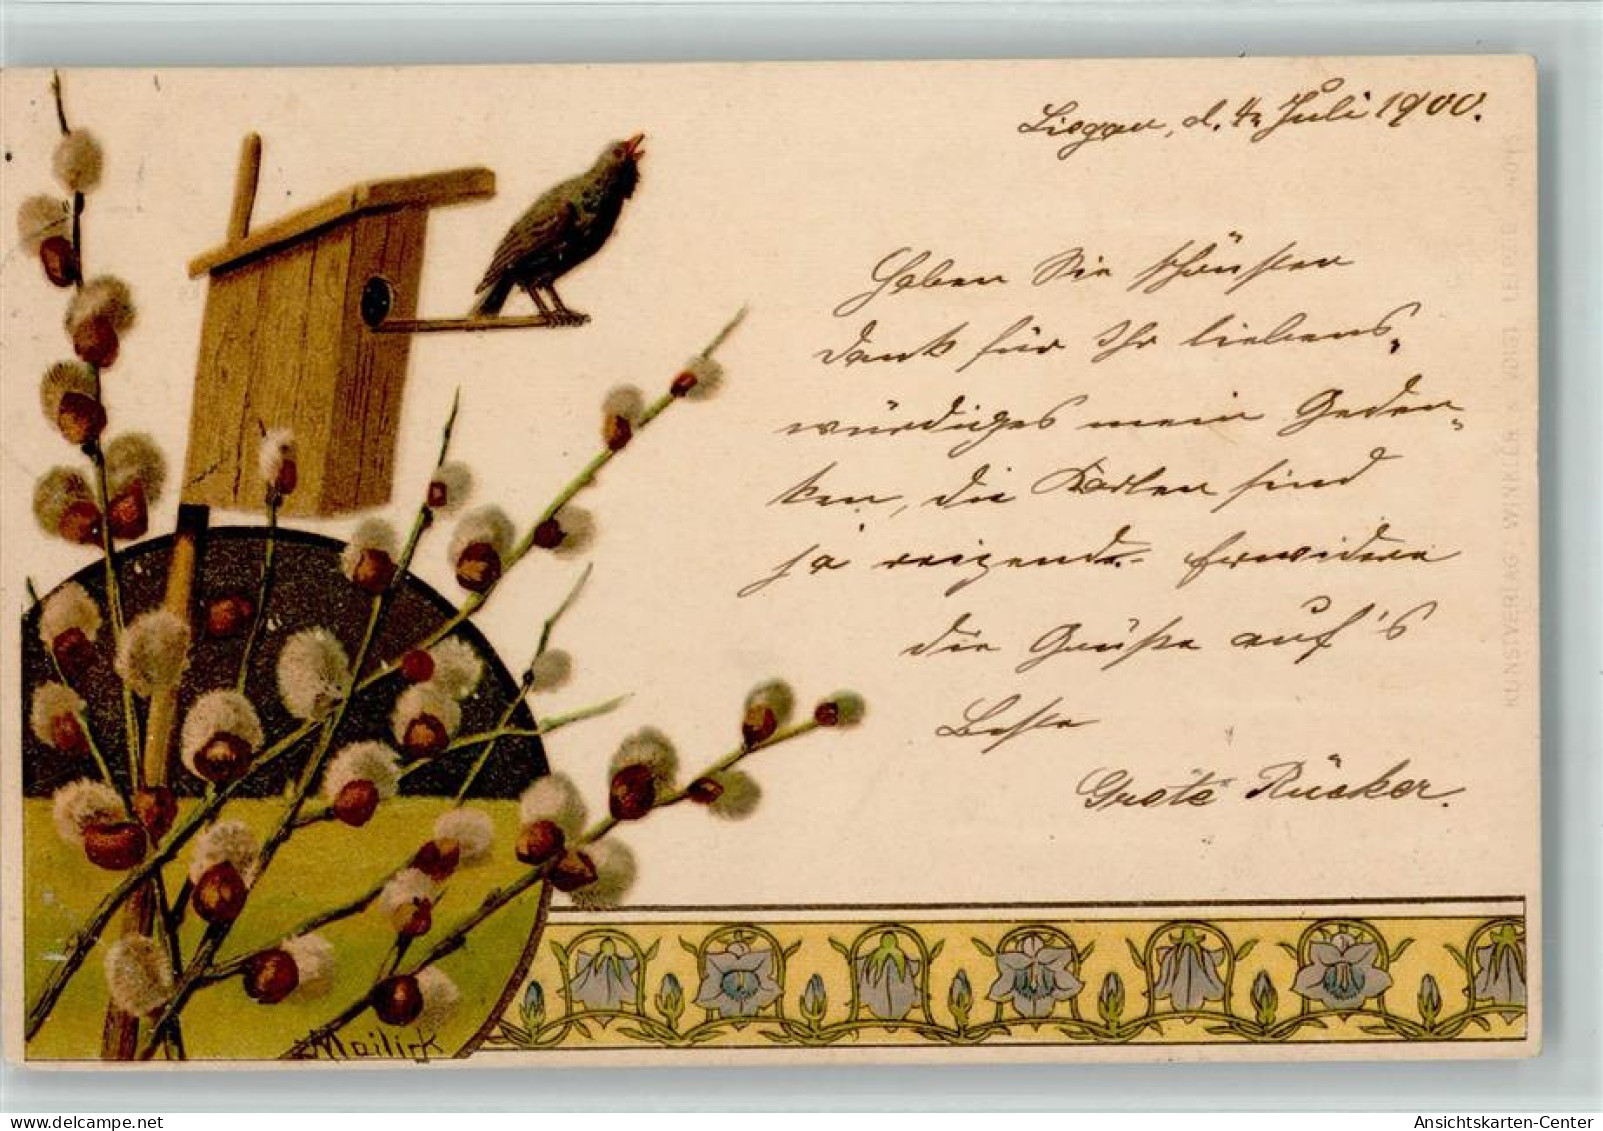 Liegau, d. 4. Juli 1900.
Haben Sie schönsten
Dank für Ihr liebens-
würdiges mein Geden-
ken, die Karten sind
ja reizend. Erwidere
die Grüße auf's
Beste
Grete Rücker.
KUNSTVERLAG WINKLER & VOIGT LEIPZIG
Mailick
Ansichtskarten-Center